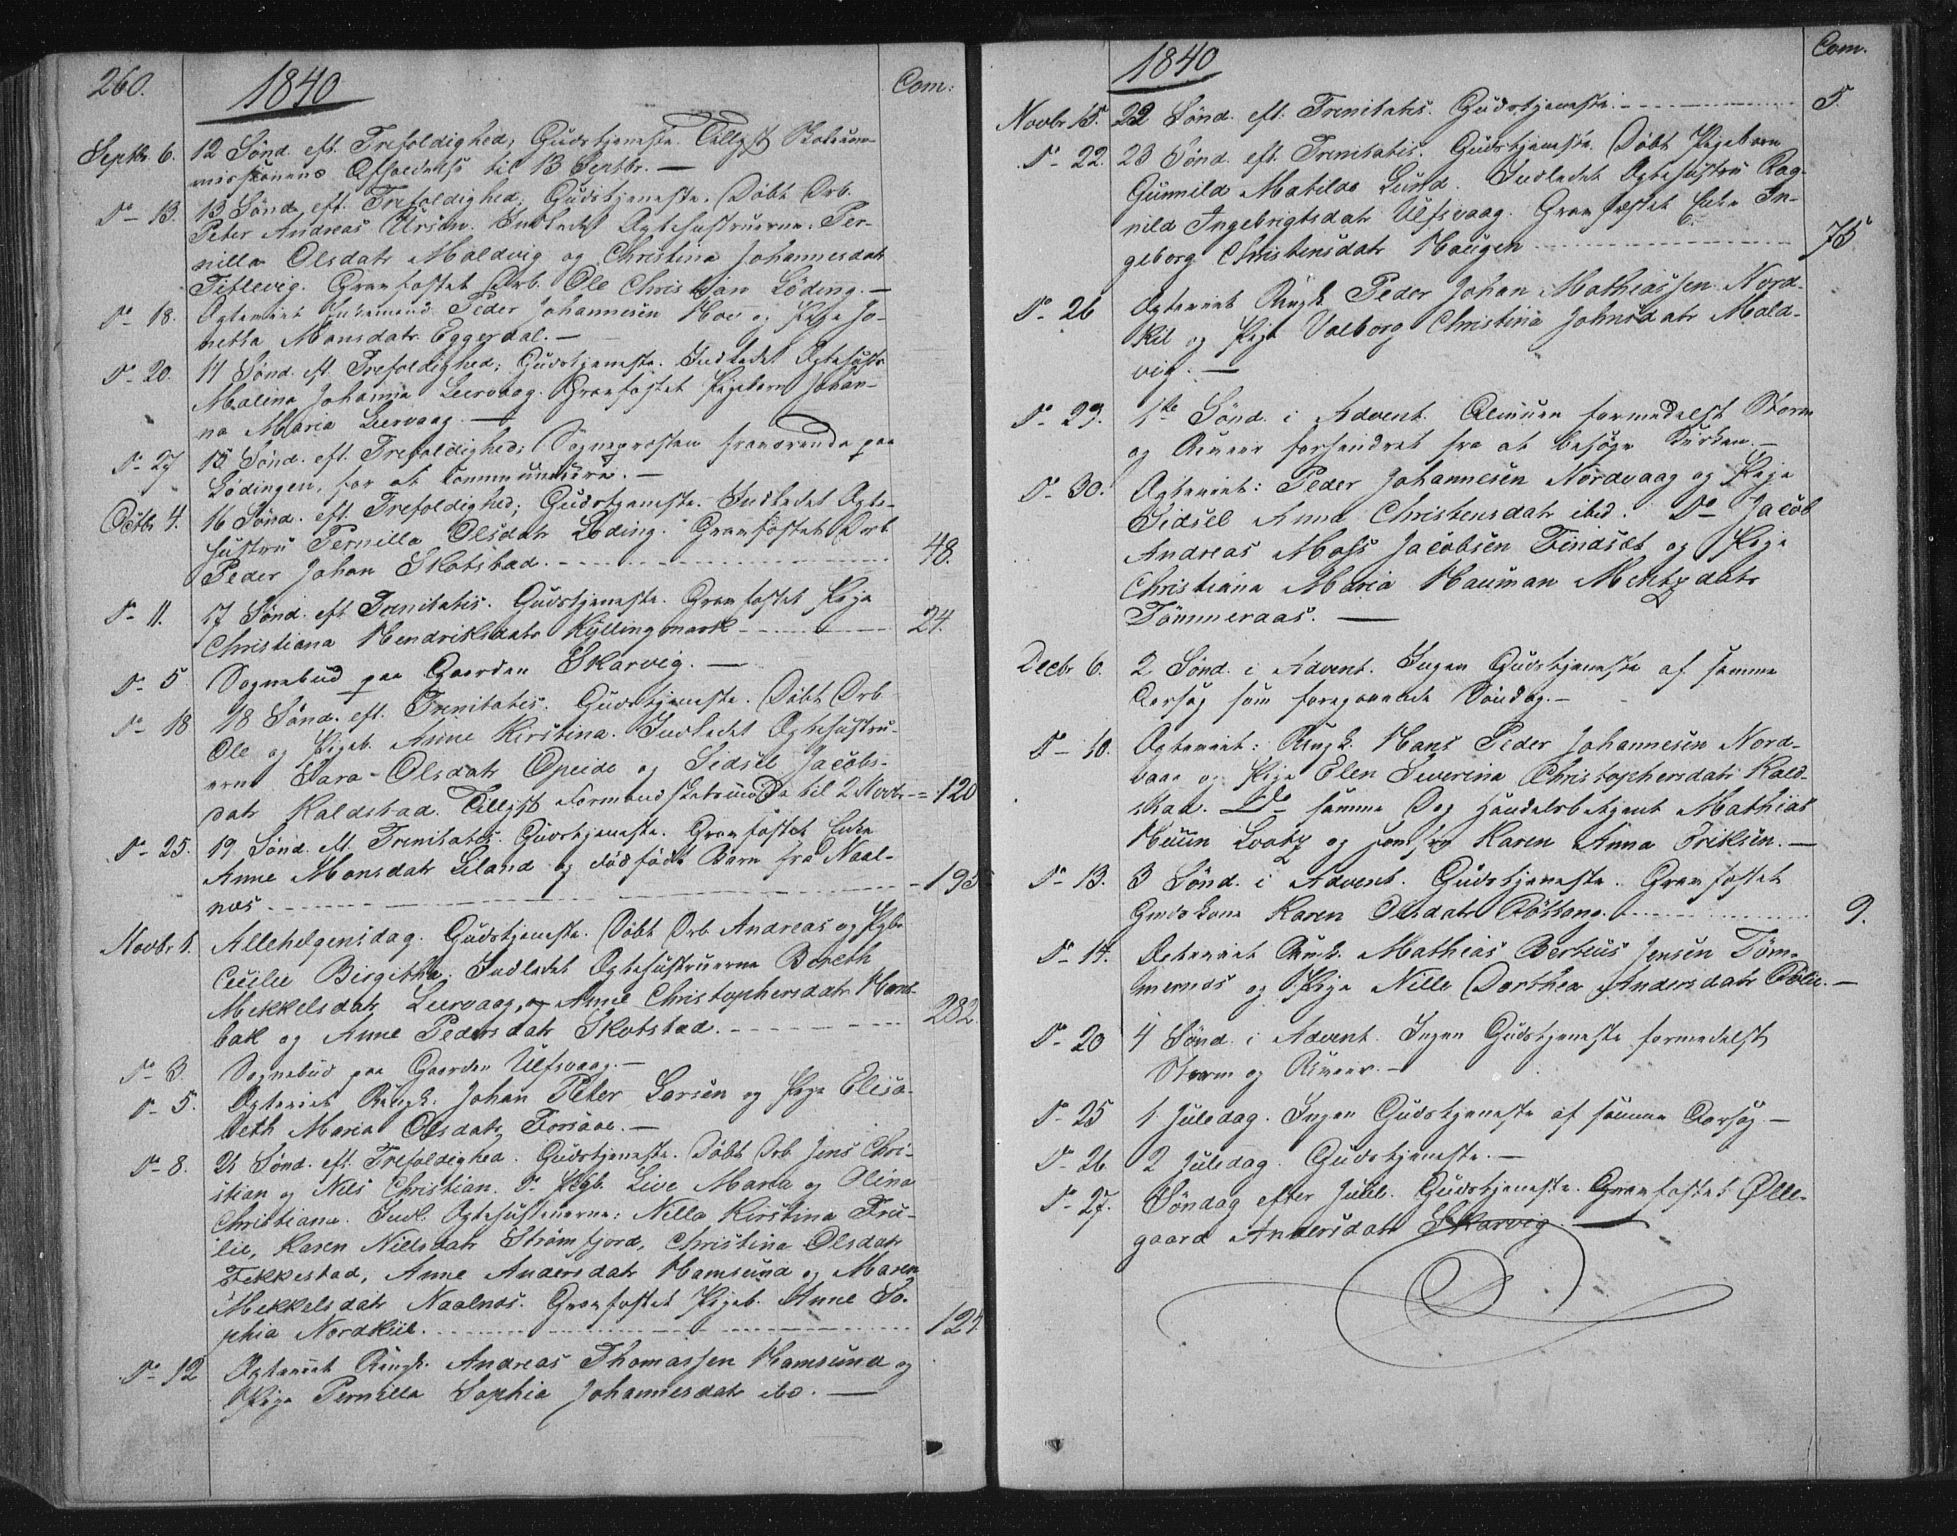 260.
1840
Com:
Septbr. 6. 12 Sønd. eft. Trefoldighed, Gudstjeneste. Tillyst Skolecom-
missionens Afholdelse til 13 Septbr. —
D— 13. 13 Sønd. eft. Trefoldighed, Gudstjeneste. Døbt Drb.
Peter Andreas Ursin. Indledet Ægtehustruerne Per-
nilla Olsdatr Maldvig og Christina Johannesdatr
Tiltevig. Gravfæstet Drb. Ole Christian Løding. —
D— 18. Ægteviet Enkemand Peder Johannesen Hov og Pige Jo-
netta Monsdatr Eggerdal. —
D— 20. 14 Sønd. eft. Trefoldighed; Gudstjeneste. Indledet Ægtehustr
Malena Johanna Leervaag. Gravfæstet Pigebarn Johan-
na Maria Leervaag. —
D— 27 15 Sønd. eft. Trefoldighed; Sognepræsten fraværende paa
Lødingen, for at communicere. —
Octbr 4. 16 Sønd. eft. Trefoldighed; Gudstjeneste. Indledet Ægte-
hustru Pernilla Olsdatr Løding. Gravfæstet Drb
Peder Johan Skotstad. 48.
D— 11. 17 Sønd. eft. Trenitatis. Gudstjeneste. Gravfæstet Pige
Christiana Hendriksdatr Kyllingmark 24.
D— 5 Sognebud paa Gaarden Skarvig. —
D— 18 18 Sønd. eft. Trenitatis. Gudstjeneste. Døbt Drb
Ole og Pigeb. Anne Kirstina. Indledet Ægtehustru-
erne Sara Olsdatr Opeide og Sidsel Jacobs-
datr Kaldstad. Tillyst Formandskabsmøde til 2 Novbr. 120
D— 25. 19 Sønd. eft. Trenitatis. Gudstjeneste. Gravfæstet Enke
Anne Monsdatr Leland og dødfødt Barn fra Naal-
næs 195
Novbr 1. Allehelgensdag. Gudstjeneste. Døbt Drb Andreas og Pgb
Cecilie Birgitha. Indledet Ægtehustruerne Bereth
Mekkelsdatr Leervaag, og Anne Christophersdatr Hans-
bak og Anne Pedersdatr Skotstad. 282.
D— 3. Sognebud paa Gaarden Ulfsvaag. —
D— 5. Ægteviet Ungk. Johan Peter Larsen og Pige Elisa-
beth Maria Olsdatr Forsaae. —
D— 8. 21 Sønd. eft. Trefoldighed. Gudstjeneste. Døbt Drb Jens Chri-
stian og Nils Christian. D— Pigb. Live Maria og Olina
Christiana. Indl. Ægtehustruerne: Nilla Kirstina Tru-
lie, Karen Nielsdatr Strømfjord, Christina Olsdatr
Fikkestad, Anne Andersdatr Hamsund og Maren
Mekkelsdatr Naalnæs. Gravfæstet Pigeb. Anne So-
phia Nordkiil. 124
D— 12 Ægteviet Ungk. Andreas Thomassen Hamsund og
Pige Pernilla Sophia Johannesdatr ibd. —
1840
Com.
Novbr 15. 22 Sønd. eft. Trenitatis. Gudstjeneste. 5.
D— 22. 23 Sønd. eft. Trenitatis. Gudstjeneste. Døbt Pigebarn
Gunnild Matilda Lund. Indledet Ægtehustru Rag-
nild Ingebrigtsdatr Ulfsvaag. Gravfæstet Enke In-
geborg Christensdatr Haugen 75
D— 26 Ægteviet Ungk. Peder Johan Mathiassen Nord-
kil og Pige Valborg Christina Johnsdatr Mald-
vig. —
D— 29. 1te Sønd. i Advent. Almuen formedelst Storm
og Uveier forhindret fra at besøge Kirken. —
D— 30. Ægteviet: Peder Johannesen Nordvaag og Pige
Sidsel Anna Christensdatr ibd. D— Jacob
Andreas Moss Jacobsen Findsæt og Pige
Christiana Maria Hauman Mentzdatr
Tømmeraas. —
Decbr 6. 2 Sønd. i Advent. Ingen Gudstjeneste af samme
Aarsag som foregaaende Søndag. —
D— 10. Ægteviet: Ungk. Hans Peder Johannesen Nord-
vaag og Pige Elen Severina Christophersdatr Kald-
stad. D— samme Dag Handelsbetjent Mathias
Huun Lootz og Jomfru Karen Anna Eriksen. —
D— 13. 3 Sønd. i Advent. Gudstjeneste. Gravfæstet
Gudskone Karen Olsdatr 9.
D— 14. Ægteviet Ungk. Mathias Berteus Jensen Tøm-
mernæs og Pige Nille Dorthea Andersdatr —
D— 20 4 Sønd. i Advent. Ingen Gudstjeneste formedelst
Storm og Uveir. —
D— 25 1. Juledag. Ingen Gudstjeneste af samme Aarsag —
D— 26 2 Juledag. Gudstjeneste. —
D— 27. Søndag efter Juul. Gudstjeneste. Gravfæstet Olle-
gaard Andersdatr Skarvig. —